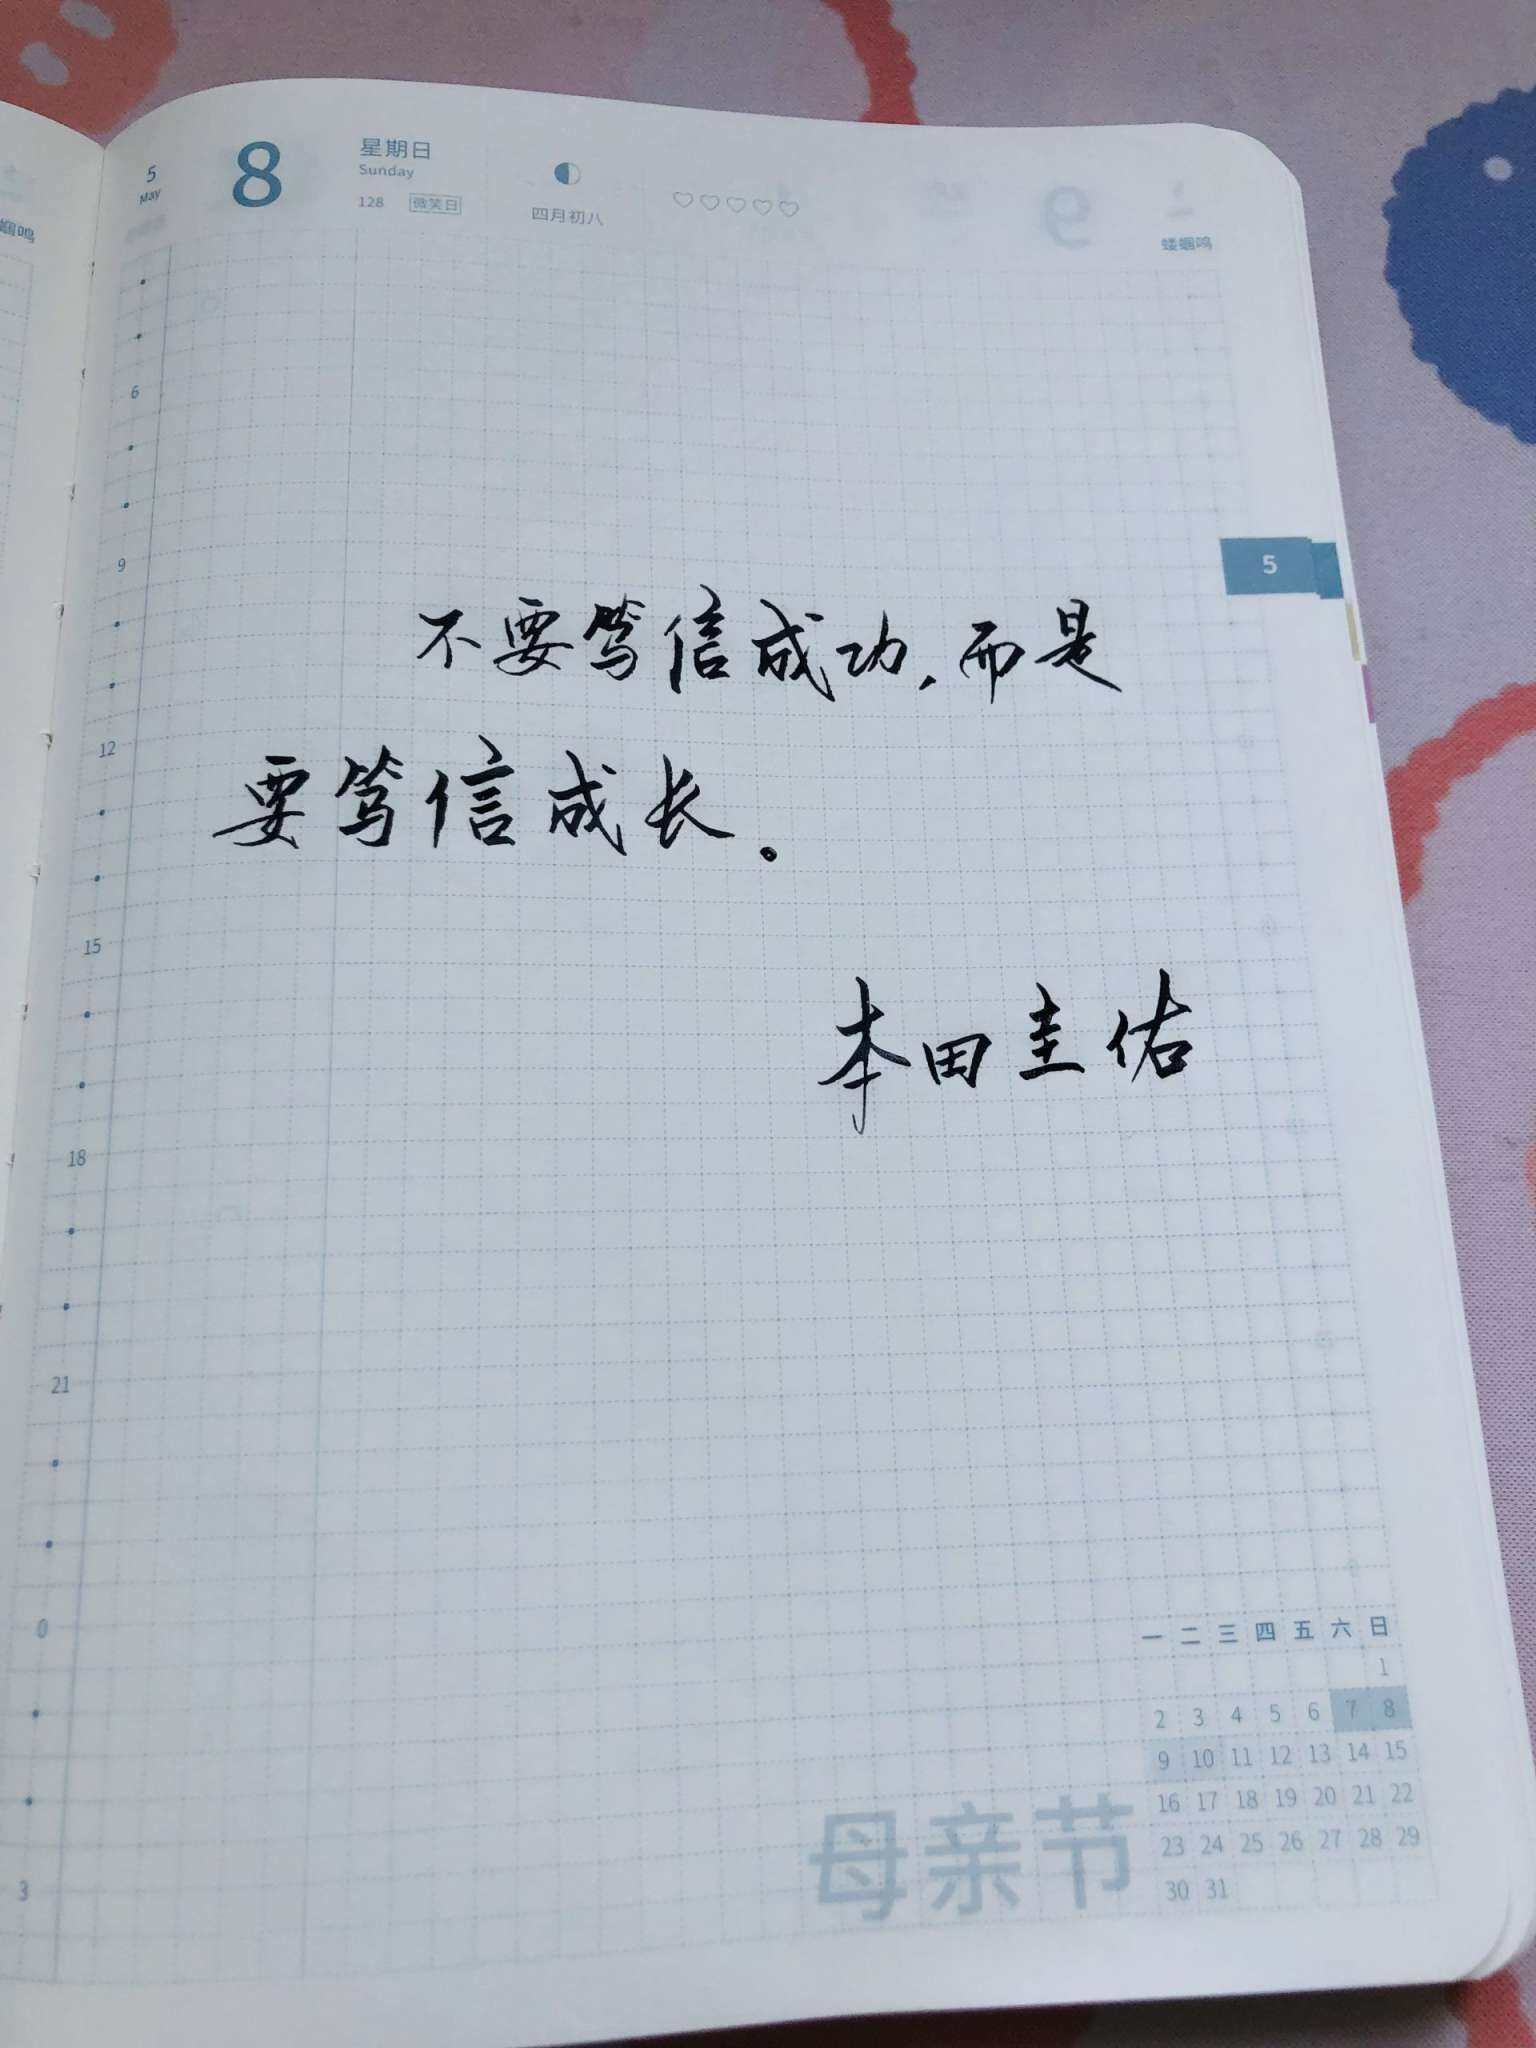 5 8 星期日
May Sunday
128 微笑日 四月初八
蝼蝈鸣
蝈鸣
6
9
5
不要笃信成功,而是
12
要笃信成长。
15
本田圭佑
18
21
0
一 二 三 四 五 六 日
1
2 3 4 5 6 7 8
9 10 11 12 13 14 15
16 17 18 19 20 21 22
23 24 25 26 27 28 29
30 31
母亲节
3